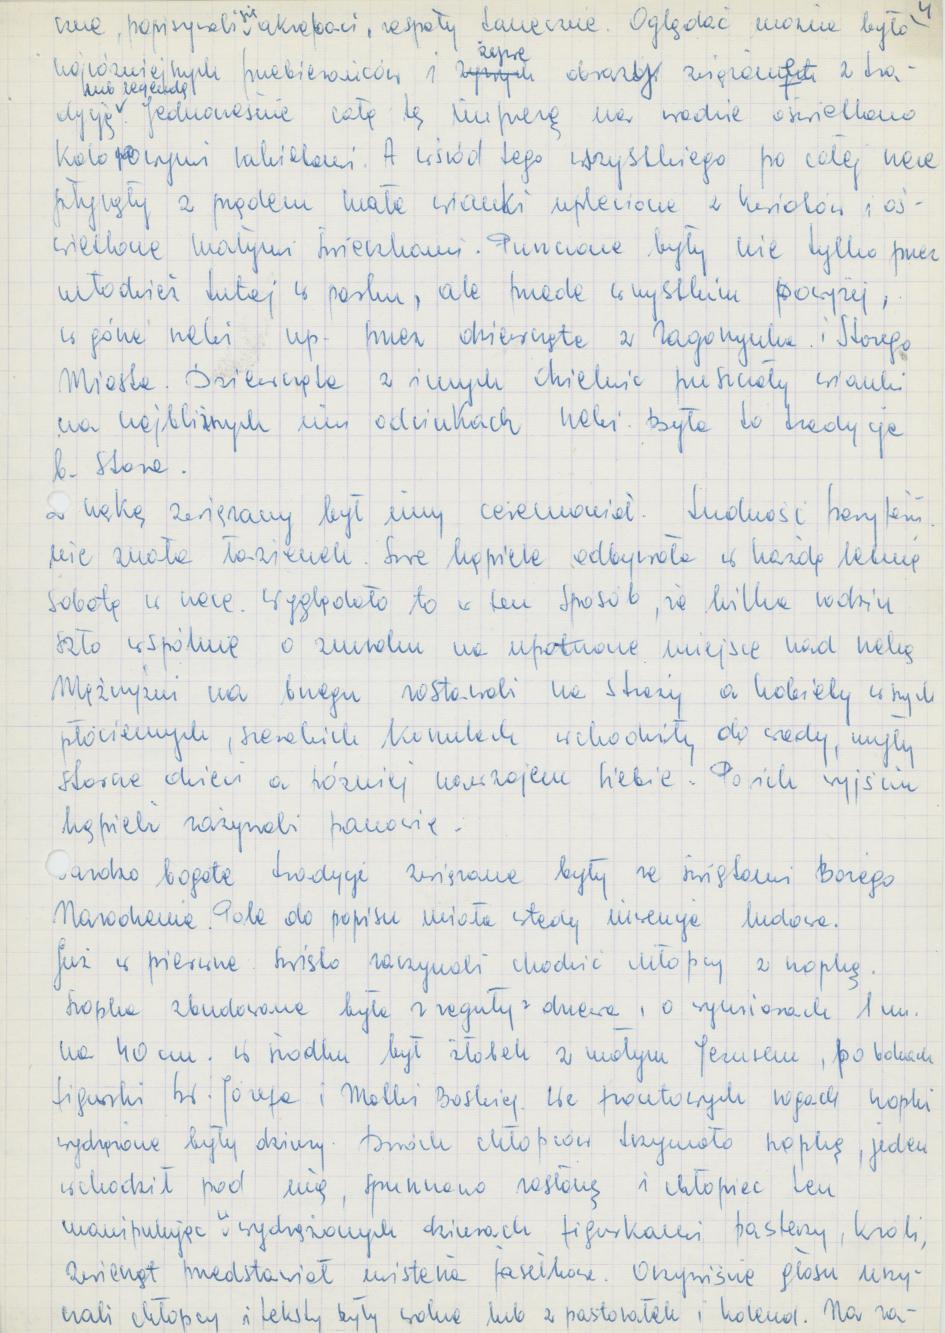 4
czne, popisywali się akrobaci, zespoły taneczne. Oglądać można było
najróżniejszych przebierańców i żywe obrazy związane z tra-
dycją lub legendą. Jednocześnie całą tę imprezę na wodzie oświetlano
kolorowymi rakietami. A wśród tego wszystkiego po całej rzece
płynęły z prądem małe wianki uplecione z kwiatów i oś-
wietlone małymi świeczkami. Puszczane były nie tylko przez
młodzież tutaj w parku, ale przede wszystkim powyżej,
w górze rzeki np. przez dziewczęta z Zagorzynka i Starego
Miasta. Dziewczęta z innych dzielnic puszczały wianki
na najbliższych im odcinkach rzeki. Była to tradycja
b. stara.
Z rzeką związany był inny ceremoniał. Ludność
nie znała łazienek. Swe kąpiele odbywała w każdą letnią
sobotę w rzece. Wyglądało to w ten sposób, że kilka rodzin
szło wspólnie o zmroku na upatrzone miejsce nad rzeką
Mężczyźni na brzegu zostawali na straży a kobiety w swych
płóciennych, szerokich koszulach wchodziły do wody, myły
starsze dzieci a później nawzajem siebie. Po ich wyjściu
kąpieli zażywali panowie.
Bardzo bogate tradycje związane były ze świętami Bożego
Narodzenia. Pole do popisu miała wtedy inwencja ludowa.
Już w pierwsze święto zaczynali chodzić chłopcy z szopką.
Szopka zbudowana była z reguły z drzewa, o wymiarach 1 m.
na 40 cm. w środku był żłobek z małym Jezusem, po bokach
figurki św. Józefa i Matki Boskiej. We frontowych rogach szopki
wydrążone były dziury. Dwóch chłopców trzymało szopkę, jeden
wchodził pod nią, spuszczano zasłonę i chłopiec ten
manipulując w wydrążonych dziurach figurkami pasterzy, króli,
zwierząt przedstawiał misteria jasełkowe. Oczywiście głosu uży-
czali chłopcy i teksty były wolne lub z pastorałek i kolend. Na za-